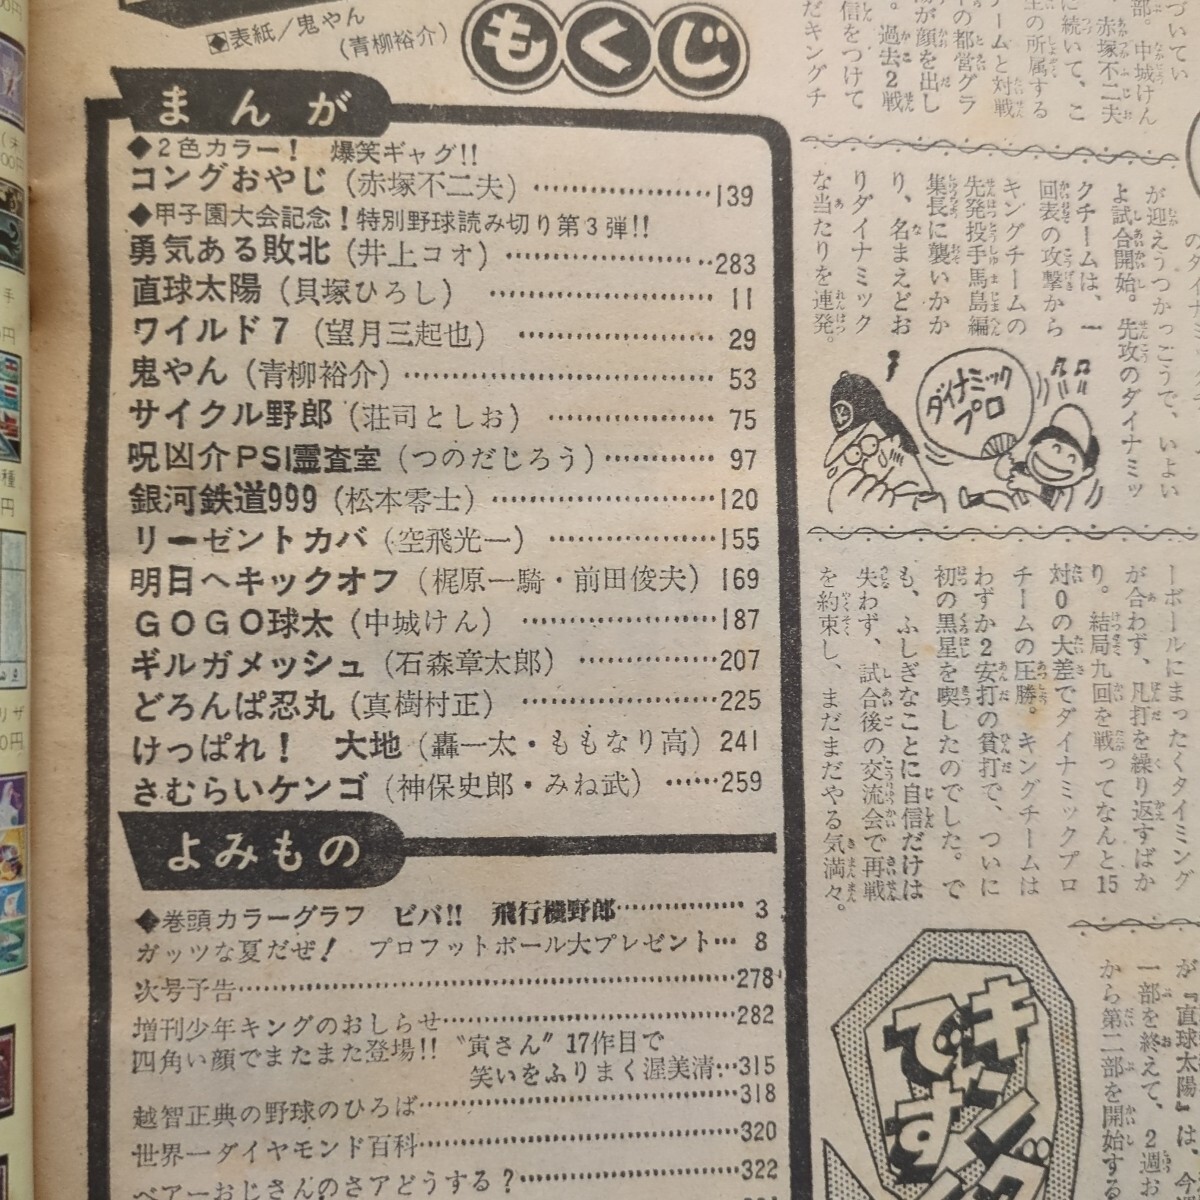 ◆表紙／鬼やん
(青柳裕介)
もくじ
まんが
◆2色カラー！ 爆笑ギャグ!!
コングおやじ(赤塚不二夫)……………139
◆甲子園大会記念！特別野球読み切り第3弾!!
勇気ある敗北(井上コオ)……………283
直球太陽(貝塚ひろし)……………11
ワイルド7(望月三起也)……………29
鬼やん(青柳裕介)……………53
サイクル野郎(荘司としお)……………75
呪凶介PSI霊査室(つのだじろう)…………97
銀河鉄道999(松本零士)……………120
リーゼントカバ(空飛光一)……………155
明日へキックオフ(梶原一騎・前田俊夫)169
GOGO球太(中城けん)……………187
ギルガメッシュ(石森章太郎)…………207
どろんぱ忍丸(真樹村正)……………225
けっぱれ！ 大地(轟一太・ももなり高)241
さむらいケンゴ(神保史郎・みね武)……259
よみもの
◆巻頭カラーグラフ ビバ!! 飛行機野郎…………3
ガッツな夏だぜ！ プロフットボール大プレゼント…8
次号予告……………278
増刊少年キングのおしらせ……………282
四角い顔でまたまた登場!! “寅さん”17作目で
笑いをふりまく渥美清…315
越智正典の野球のひろば……………318
世界一ダイヤモンド百科……………320
ベアーおじさんのさアどうする？……………322
づいてい
部。中城けん
赤塚不二夫
に続いて、こ
生の所属する
ームと対戦
の都営グラ
が顔を出し
過去2戦
信をつけて
だキングチ
のダイナミッ
が迎えうつかっこうで、いよい
よ試合開始。先攻のダイナミッ
クチームは、一
回表の攻撃から
キングチームの
先発投手馬島編
集長に襲いかか
り、名まえどお
りダイナミック
な当たりを連発。
ダイナミック
プロ
ーボールにまったくタイミング
が合わず、凡打を繰り返すばか
り。結局九回を戦ってなんと15
対0の大差でダイナミックプロ
チームの圧勝。キングチームは
わずか2安打の貧打で、ついに
初の黒星を喫したのでした。で
も、ふしぎなことに自信だけは
失わず、試合後の交流会で再戦
を約束し、まだまだやる気満々。
キング
です
が『直球太陽』は、今
一部を終えて、2週お
から第二部を開始する